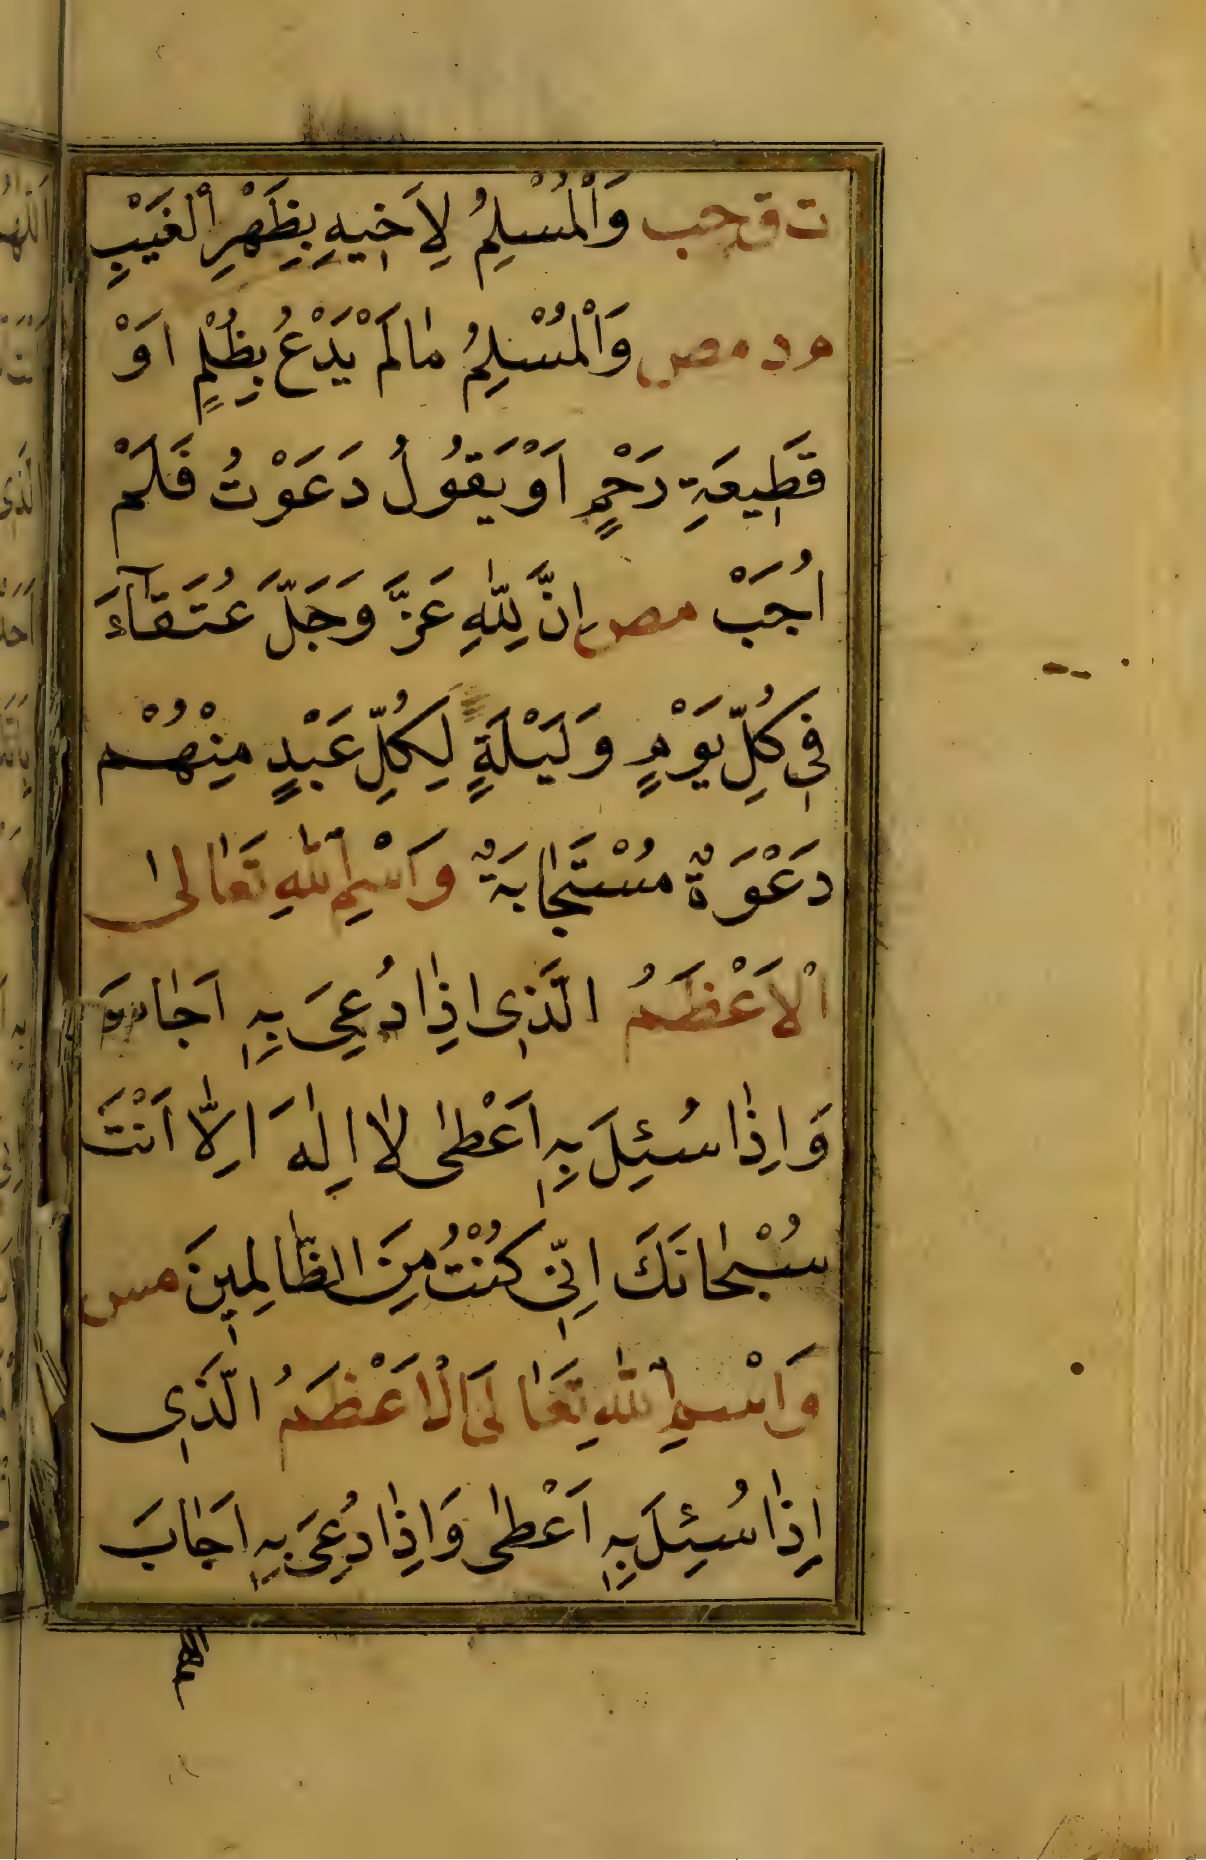 ت ق حب وَالْمُسْلِمُ لِاَخِيهِ بِظَهْرِ الْغَيْبِ
م د مص وَالْمُسْلِمُ مَالَمْ يَدْعُ بِظُلْمٍ اَوْ
قَطِيعَةِ رَحِمٍ اَوْ يَقُولُ دَعَوْتُ فَلَمْ
اُجَبْ مص اِنَّ لِلّٰهِ عَزَّ وَجَلَّ عُتَقَآءَ
فِي كُلِّ يَوْمٍ وَلَيْلَةٍ لِكُلِّ عَبْدٍ مِنْهُمْ
دَعْوَةٌ مُسْتَجَابَةٌ وَاسْمُ اللّٰهِ تَعَالىٰ
الْاَعْظَمُ الَّذِي اِذَا دُعِيَ بِهِ اَجَابَ
وَاِذَا سُئِلَ بِهِ اَعْطىٰ لَا اِلٰهَ اِلَّا اَنْتَ
سُبْحَانَكَ اِنِّي كُنْتُ مِنَ الظَّالِمِينَ مس
وَاسْمُ اللّٰهِ تَعَالَى الْاَعْظَمُ الَّذِي
اِذَا سُئِلَ بِهِ اَعْطىٰ وَاِذَا دُعِيَ بِهِ اَجَابَ